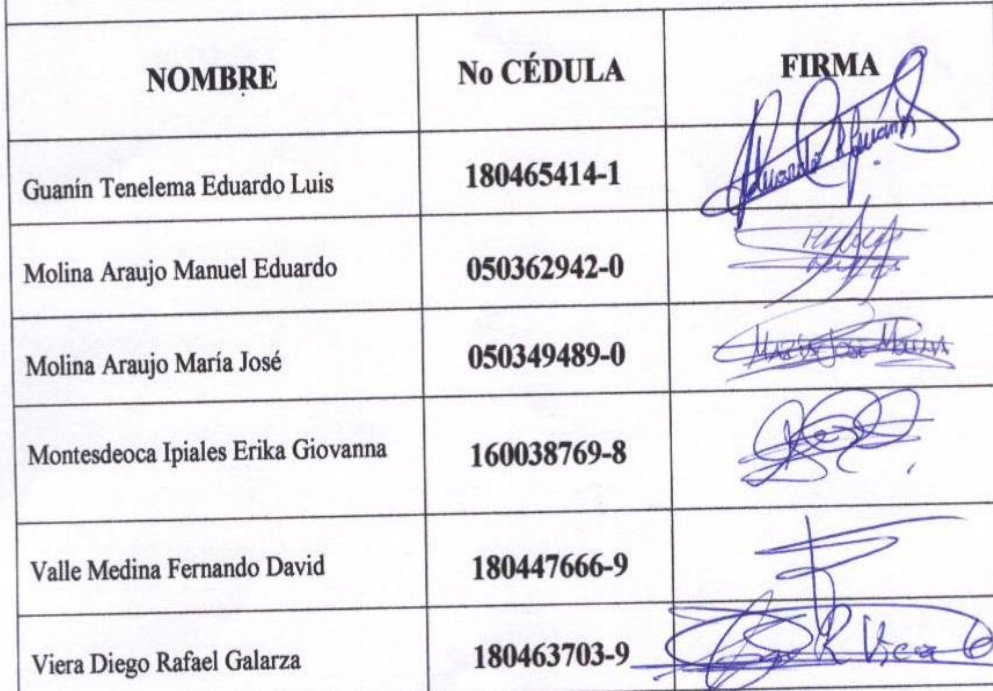 NOMBRE No CÉDULA FIRMA
Guanín Tenelema Eduardo Luis 180465414-1
Molina Araujo Manuel Eduardo 050362942-0
Molina Araujo María José 050349489-0 María José Molina
Montesdeoca Ipiales Erika Giovanna 160038769-8
Valle Medina Fernando David 180447666-9
Viera Diego Rafael Galarza 180463703-9